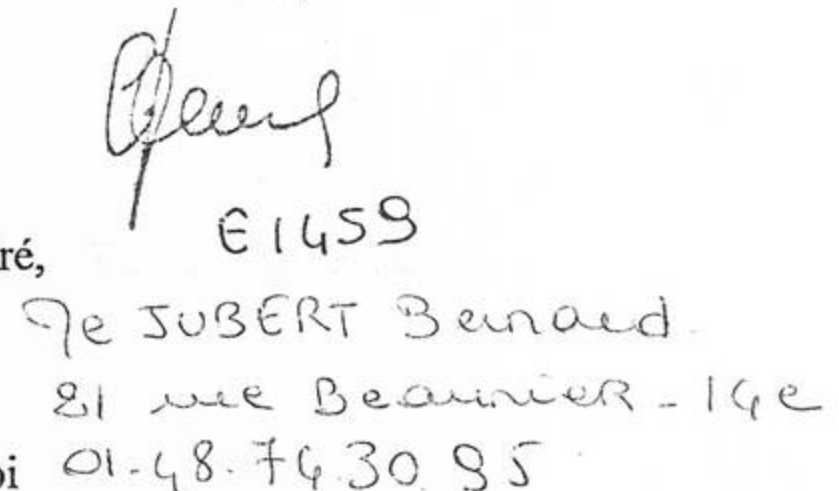 E1459
ré,
Me JUBERT Bernard
21 rue Beaunier - 14e
oi 01.48.74.30.95